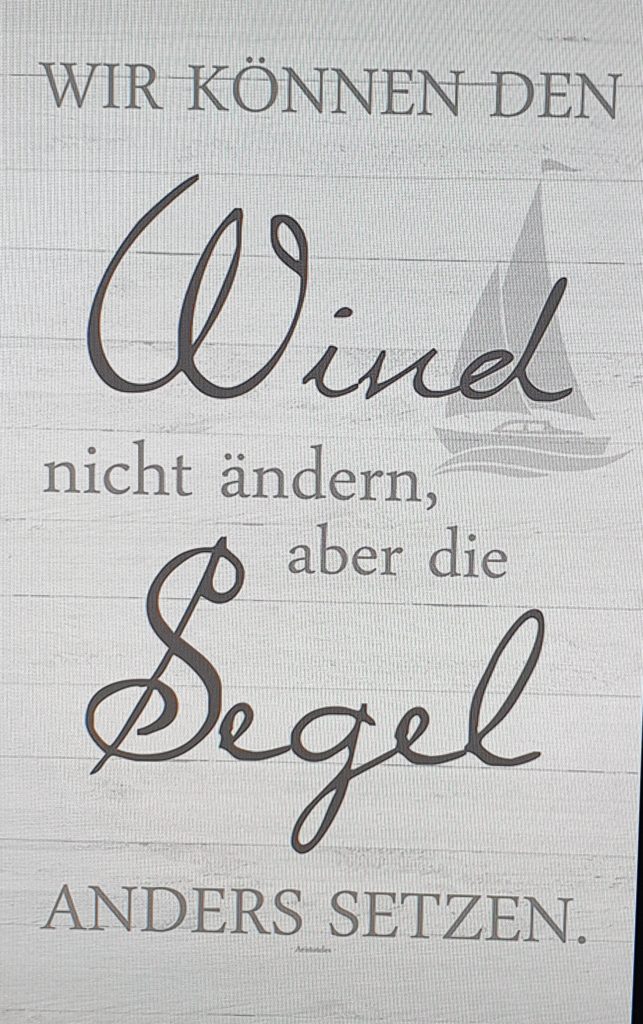 WIR KÖNNEN DEN
Wind
nicht ändern,
aber die
Segel
ANDERS SETZEN.
Aristoteles